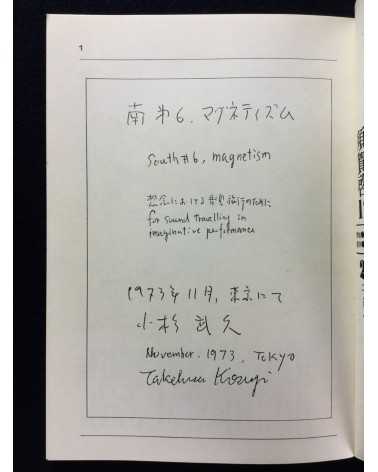 1
南 第6, マグネティズム
South #6, magnetism
想念における音響旅行のために
for sound travelling in
imaginative performance
1973年11月, 東京にて
小杉 武久
November. 1973. Tokyo
Takehisa Kosugi